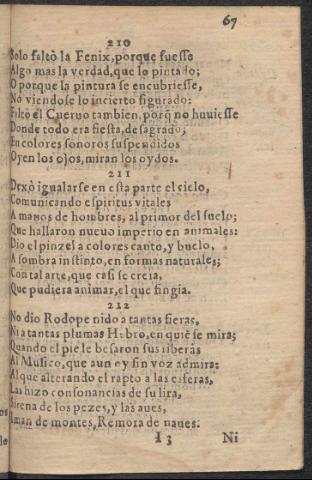 67
210
Solo faltò la Fenix, porque fuesse
Algo mas la verdad, que lo pintado;
O porque la pintura se encubriesse,
No viendose lo incierto figurado:
Faltò el Cueruo tambien, porq̃ no huuiesse
Donde todo era fiesta, desagrado;
En colores sonoros suspendidos
Oyen los ojos, miran los oydos.
211
Dexò igualarse en esta parte el cielo,
Comunicando espiritus vitales
A manos de hombres, al primor del suelo;
Que hallaron nueuo imperio en animales:
Dio el pinzel a colores canto, y buelo,
A sombra instinto, en formas naturales;
Con tal arte, que casi se creia,
Que pudiera animar, el que fingia.
212
No dio Rodope nido a tantas fieras,
Ni a tantas plumas Hebro, en quiẽ se mira;
Quando el pie le besaron sus riberas
Al Musico, que aun oy sin voz admira:
Al que alterando el rapto a las esferas,
Las hizo consonancias de su lira,
Sirena de los pezes, y las aues,
Iman de montes, Remora de naues.
I 3 Ni